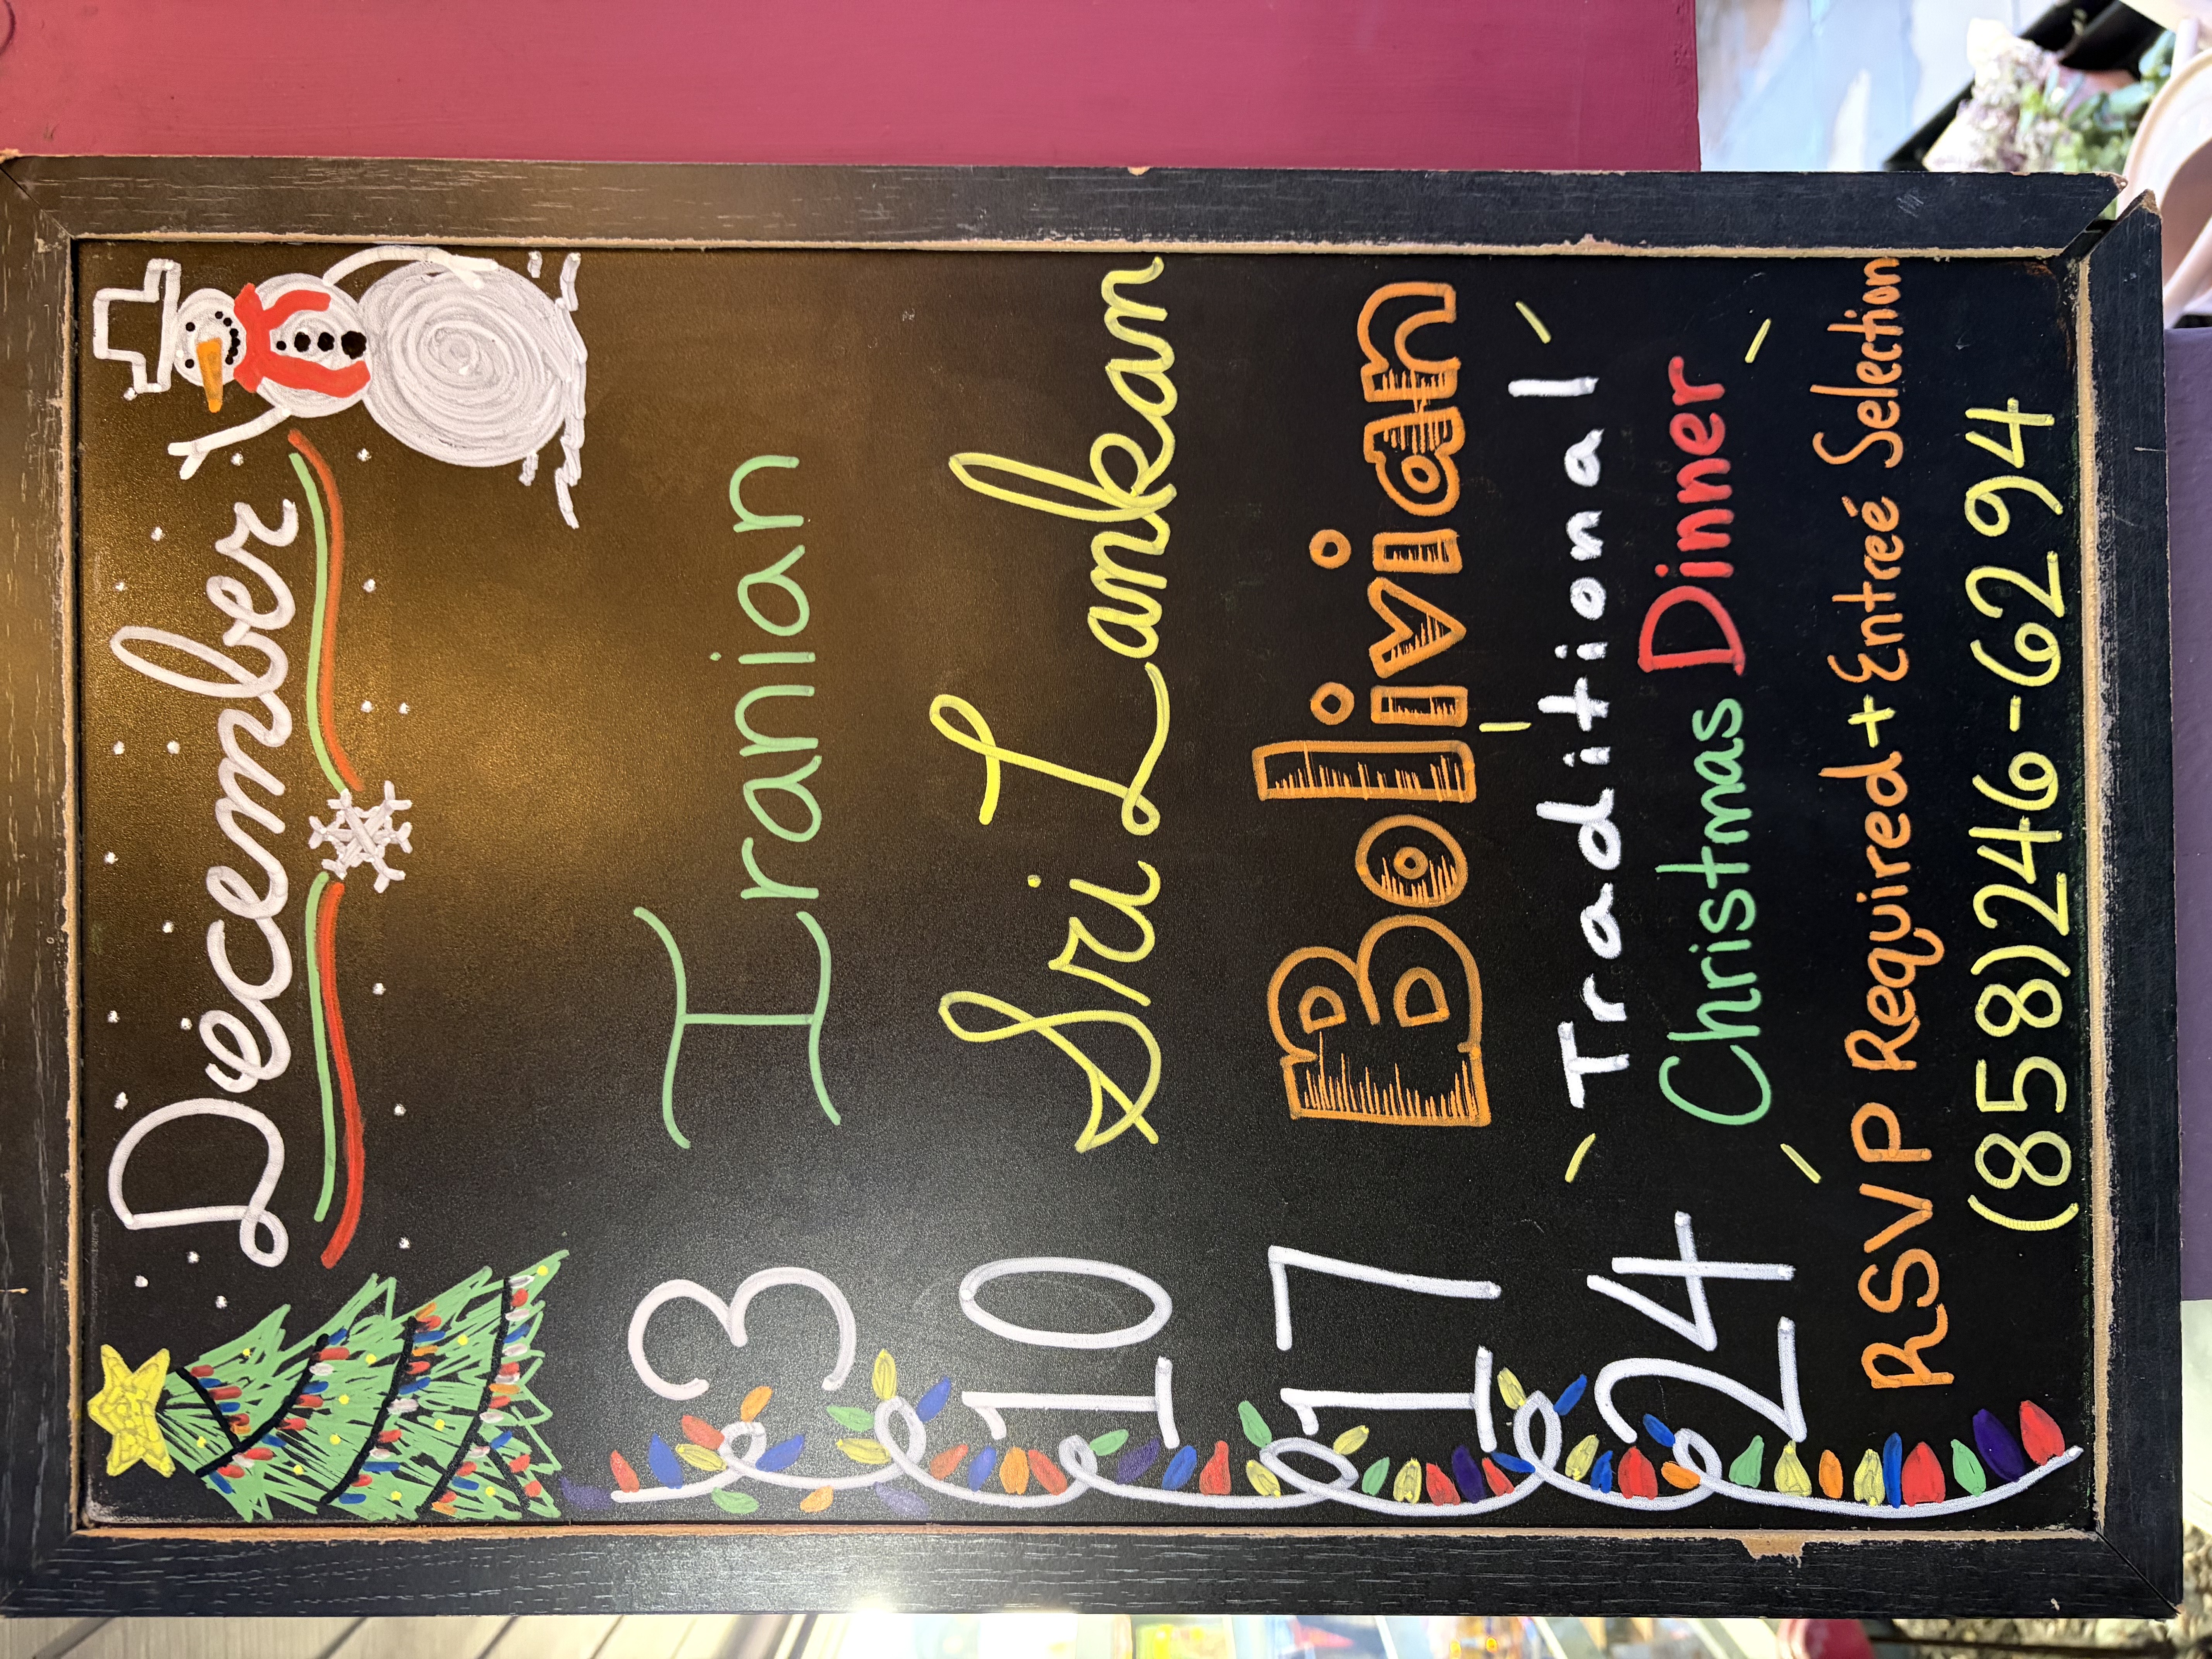 December
3 Iranian
10 Sri Lankan
17 Bolivian
24 Traditional
Christmas Dinner
RSVP Required + Entreé Selection
(858)246-6294